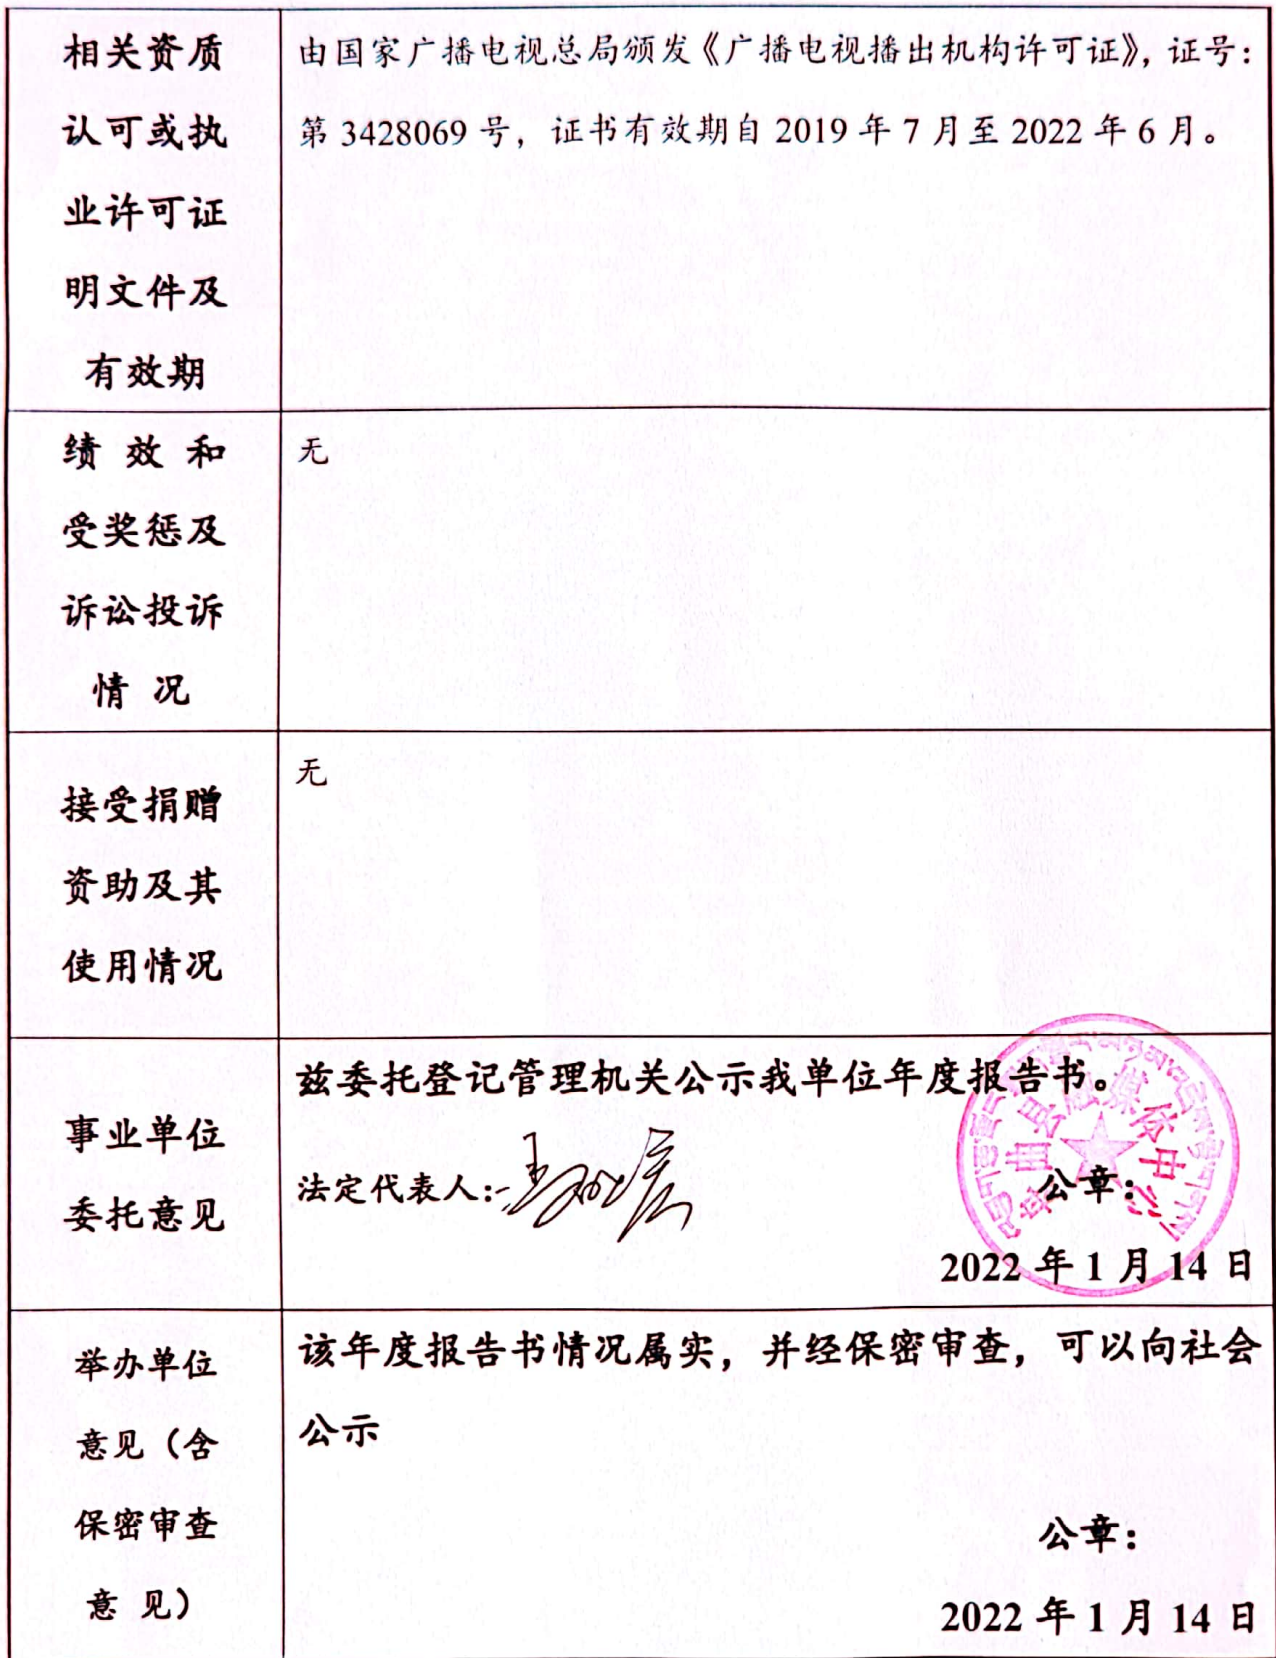 相关资质
认可或执
业许可证
明文件及
有效期
由国家广播电视总局颁发《广播电视播出机构许可证》，证号：
第 3428069 号，证书有效期自 2019 年 7 月至 2022 年 6 月。
绩 效 和
受奖惩及
诉讼投诉
情 况
无
接受捐赠
资助及其
使用情况
无
事业单位
委托意见
兹委托登记管理机关公示我单位年度报告书。
法定代表人：
公章：
2022 年 1 月 14 日
曲县融媒体中心
举办单位
意见（含
保密审查
意 见）
该年度报告书情况属实，并经保密审查，可以向社会
公示
公章：
2022 年 1 月 14 日